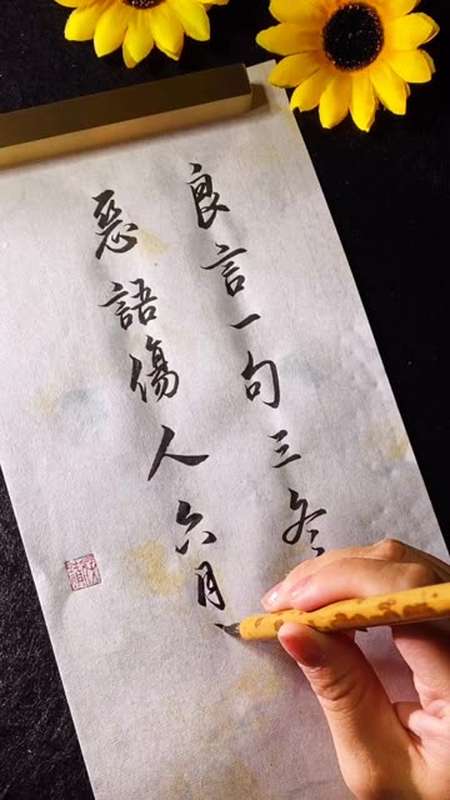 良言一句三冬
惡語傷人六月